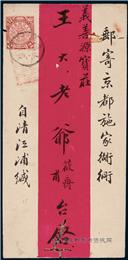 郵寄京都施家衚衕
義善源寶莊
王大老爺筱舟甫台啓
自清江浦緘